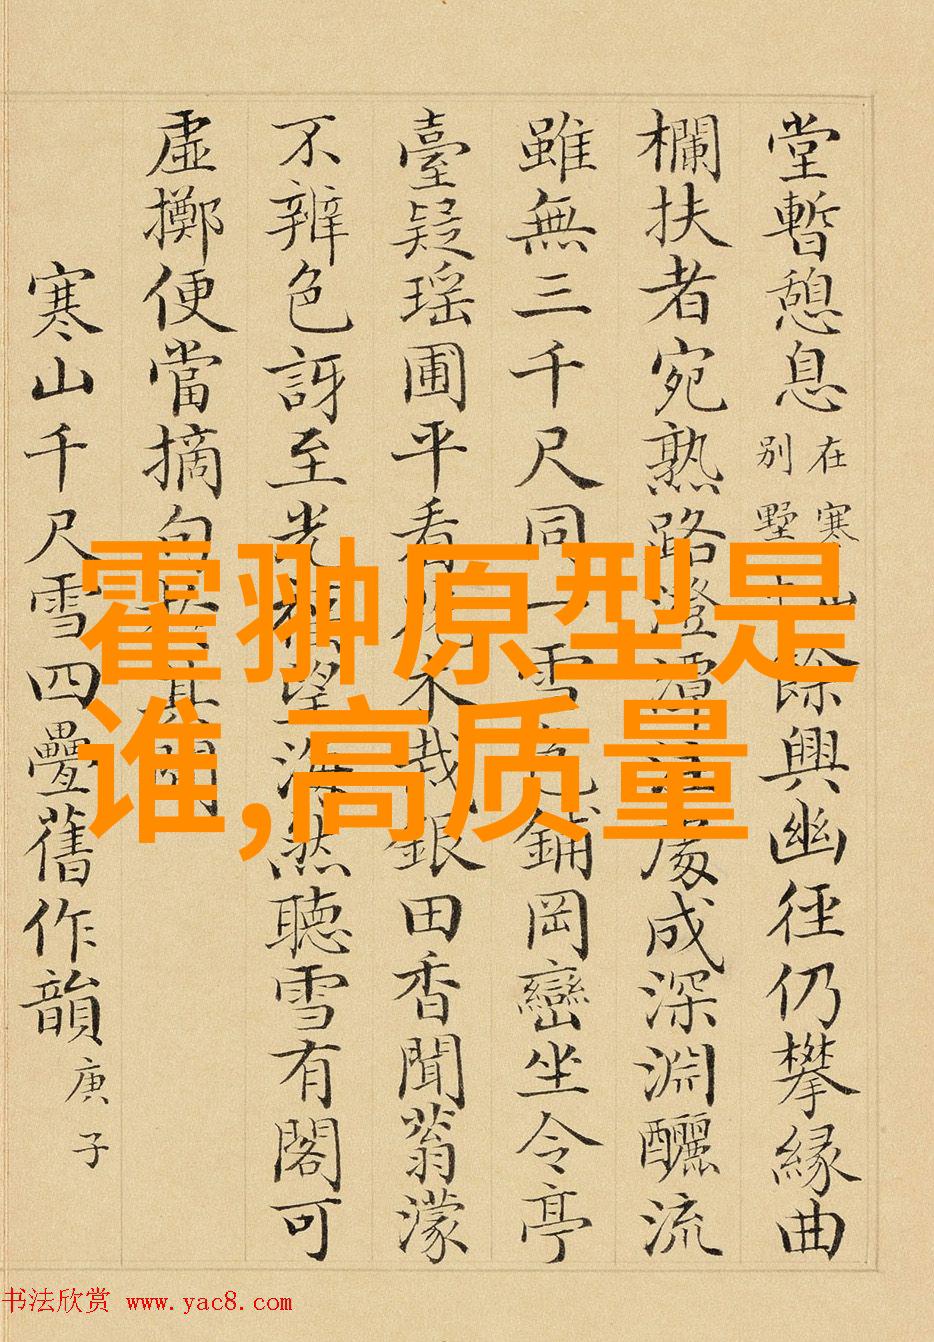 堂暫憩息在寒山別墅餘興幽徑仍攀緣曲
欄扶者宛熟路澄潭處成深淵釃流
雖無三千尺同一雪色鋪岡巒坐令亭
臺疑瑤圃平看水栽銀田香聞蓊濛
不辨色訝至光相望浩然聽雪有閣可
虛擲便當摘句其間
寒山千尺雪四疊舊作韻庚子
霍翀原型是
谁,高质量
书法欣赏 www.yac8.com